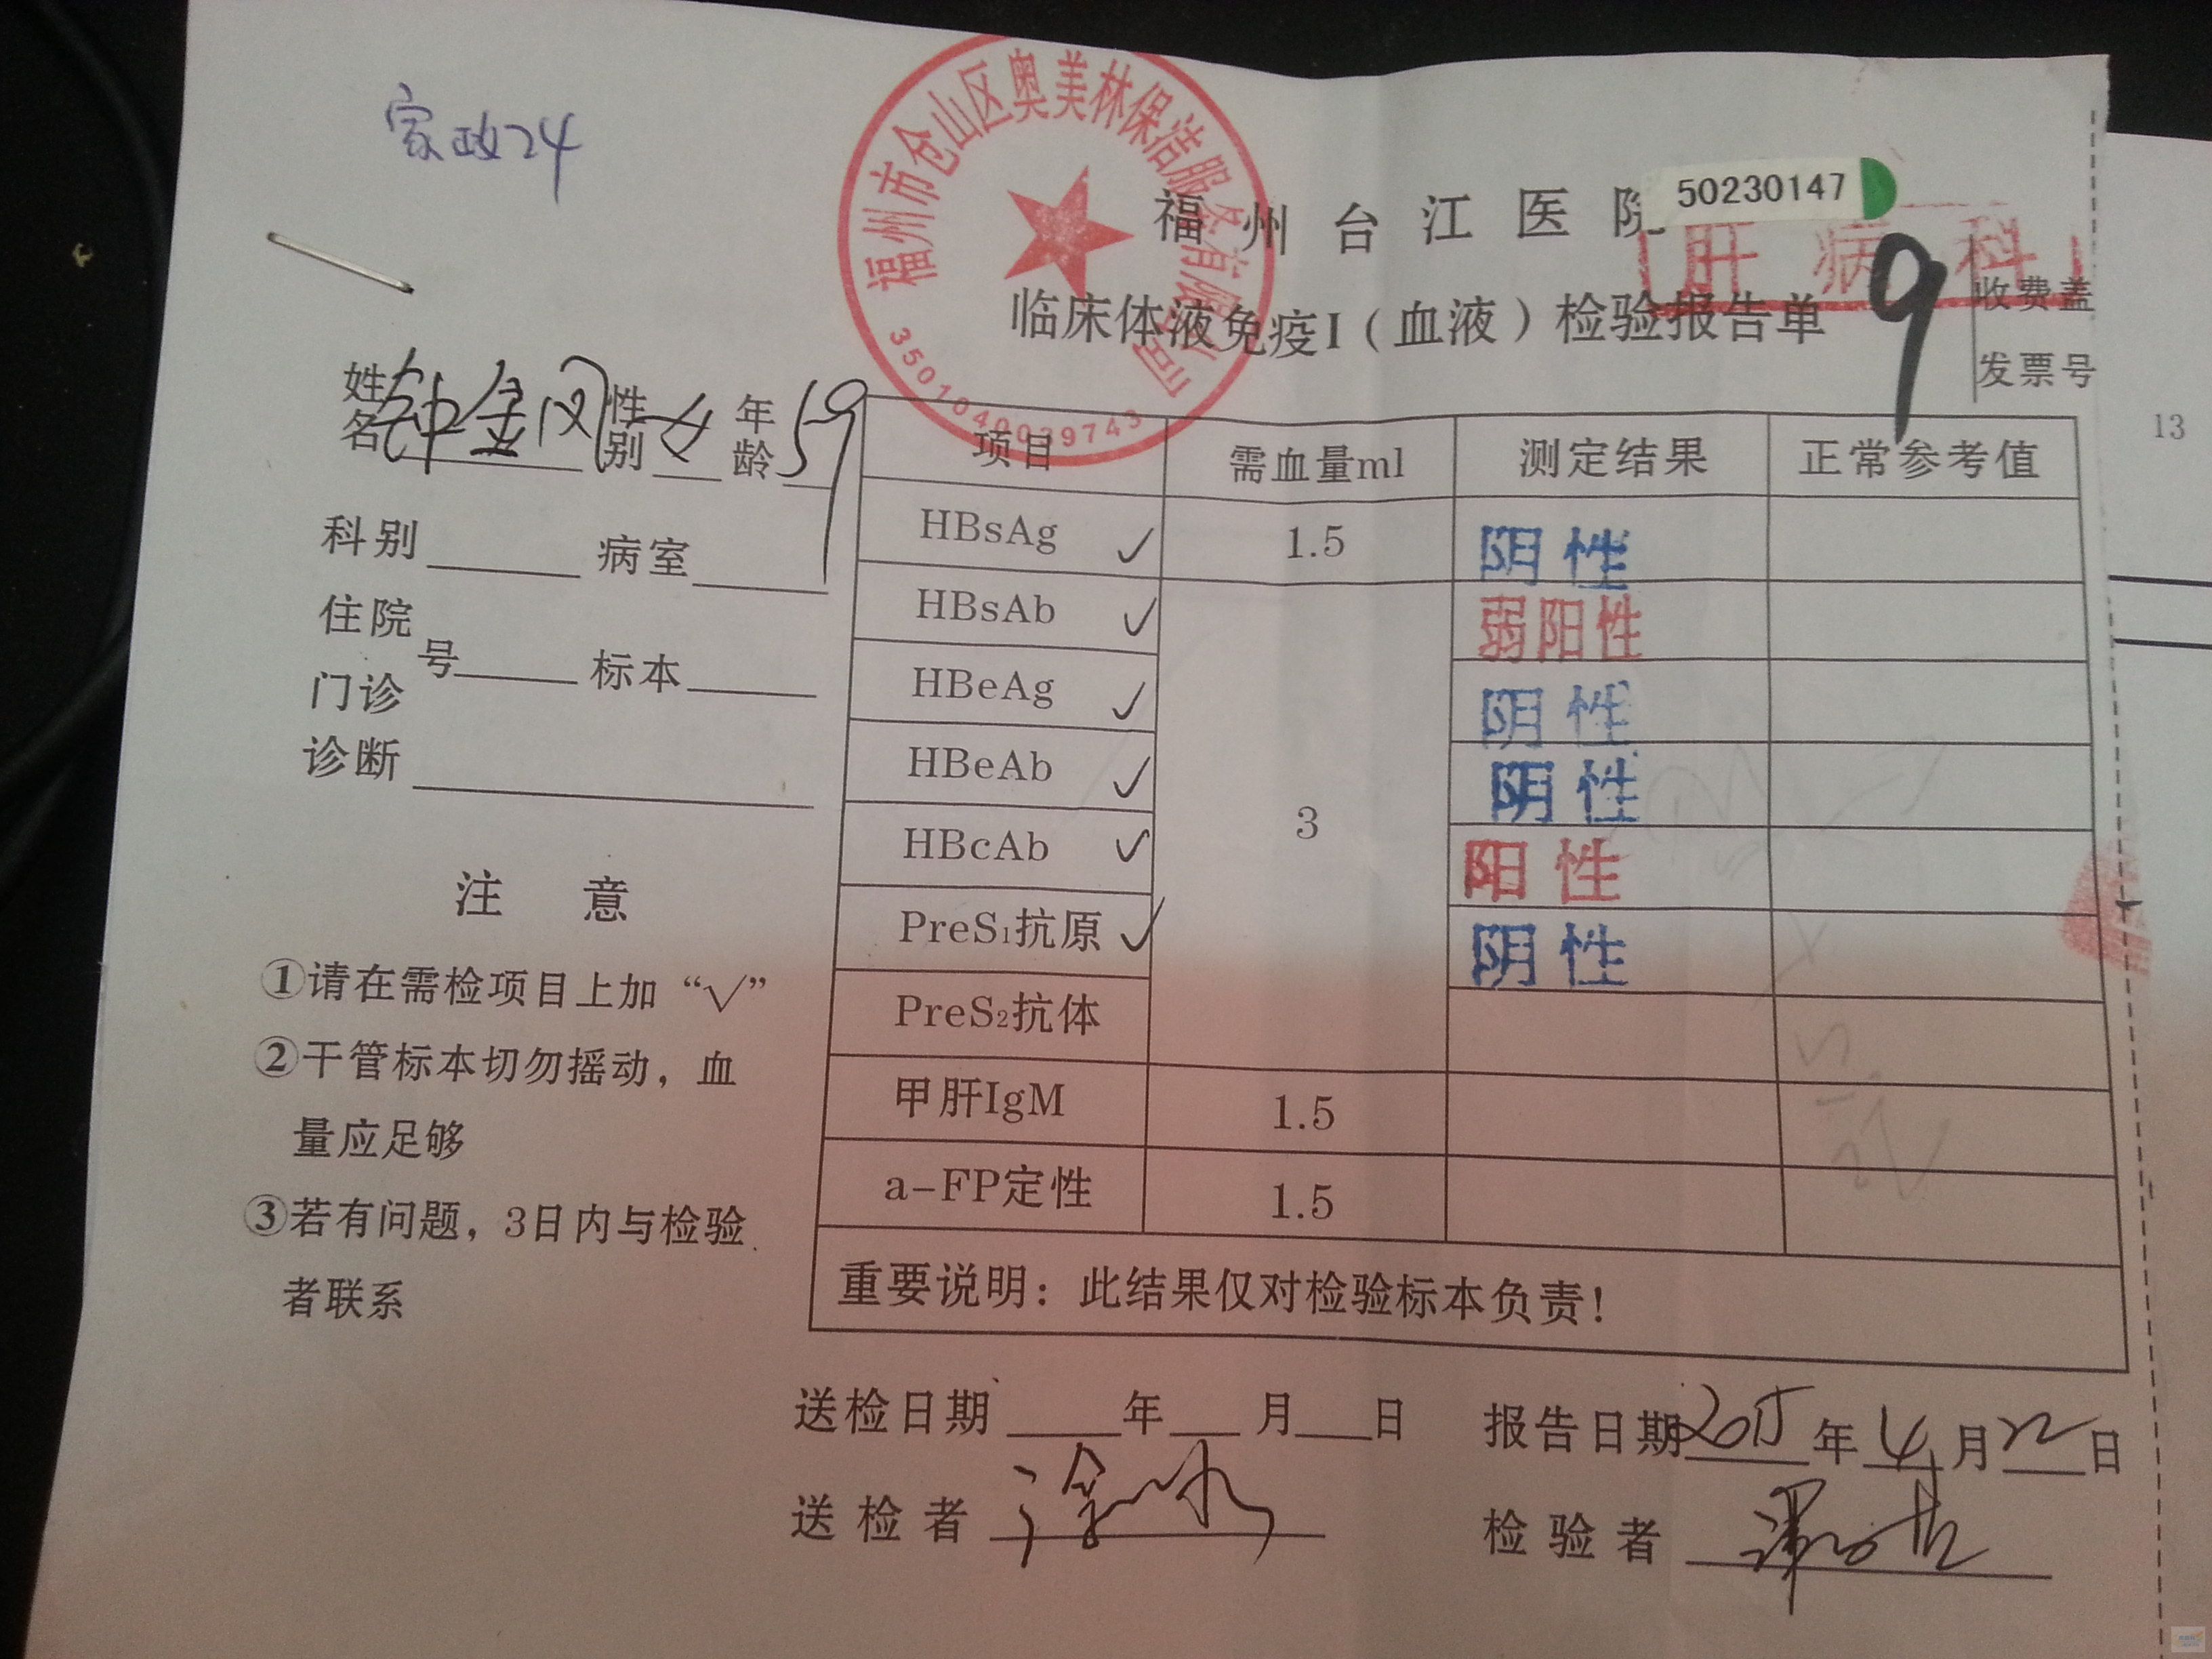 家政24
福州市仓山区奥美林保洁服务有限公司
3501040039743
50230147
福州台江医院
肝病科
临床体液免疫I（血液）检验报告单
9
收费盖
发票号
13
姓名 钟金凤 性别 女 年龄 59
科别 病室
住院
门诊 号 标本
诊断
注 意
①请在需检项目上加“√”
②干管标本切勿摇动，血
量应足够
③若有问题，3日内与检验
者联系
项目 需血量ml 测定结果 正常参考值
HBsAg √ 1.5 阴性
HBsAb √ 弱阳性
HBeAg √ 阴性
HBeAb √ 阴性
3
HBcAb √ 阳性
PreS₁抗原 √ 阴性
PreS₂抗体
甲肝IgM 1.5
a-FP定性 1.5
重要说明：此结果仅对检验标本负责！
送检日期 年 月 日 报告日期 2015 年 4 月 22 日
送检者 检验者